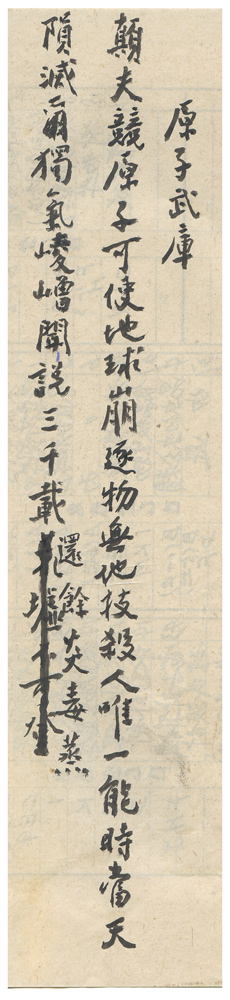 原子武庫
顛夫競原子可使地球崩逐物無他技殺人唯一能時當天
隕滅爾獨氣崚嶒聞說三千載還餘炎毒蒸